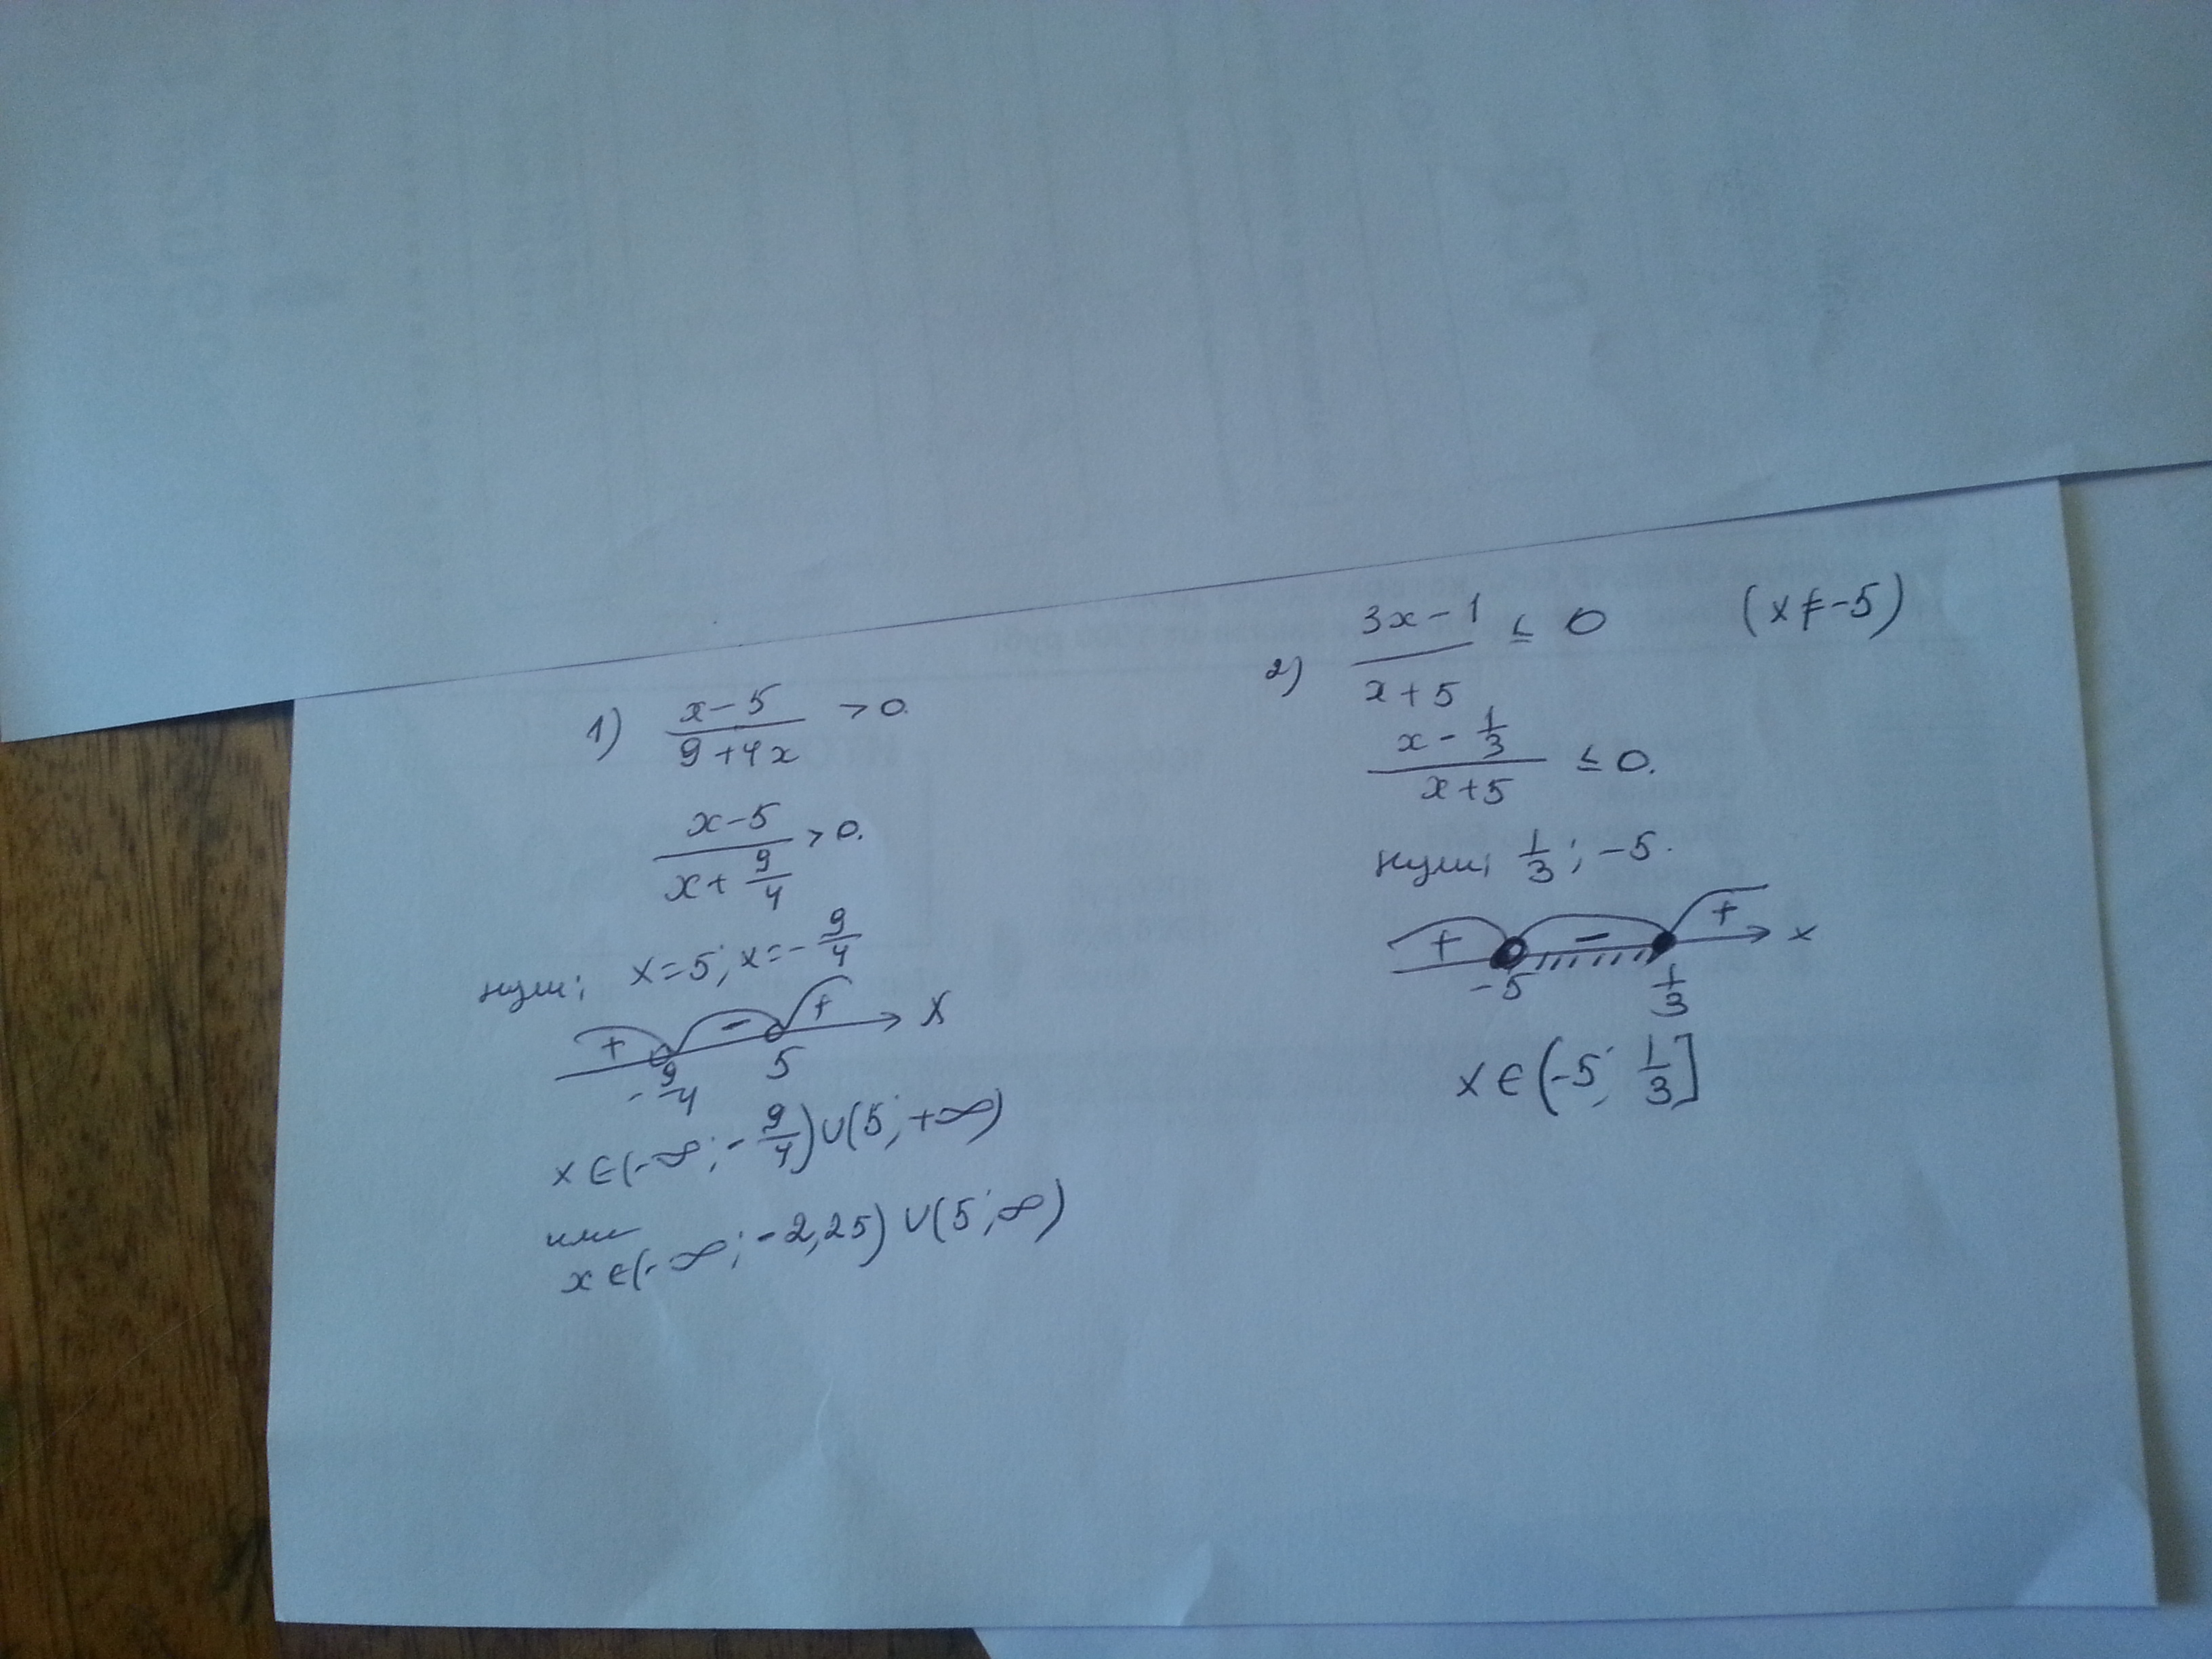 1) (x-5)/(9+4x) > 0.
(x-5)/(x+9/4) > 0.
нули; x=5; x=-9/4
+ - + x
-9/4 5
x∈(-∞; -9/4)∪(5; +∞)
или
x∈(-∞; -2,25)∪(5; ∞)
2) (3x-1)/(x+5) ≤ 0 (x≠-5)
(x-1/3)/(x+5) ≤ 0.
нули; 1/3; -5.
+ - + x
-5 1/3
x∈(-5; 1/3]